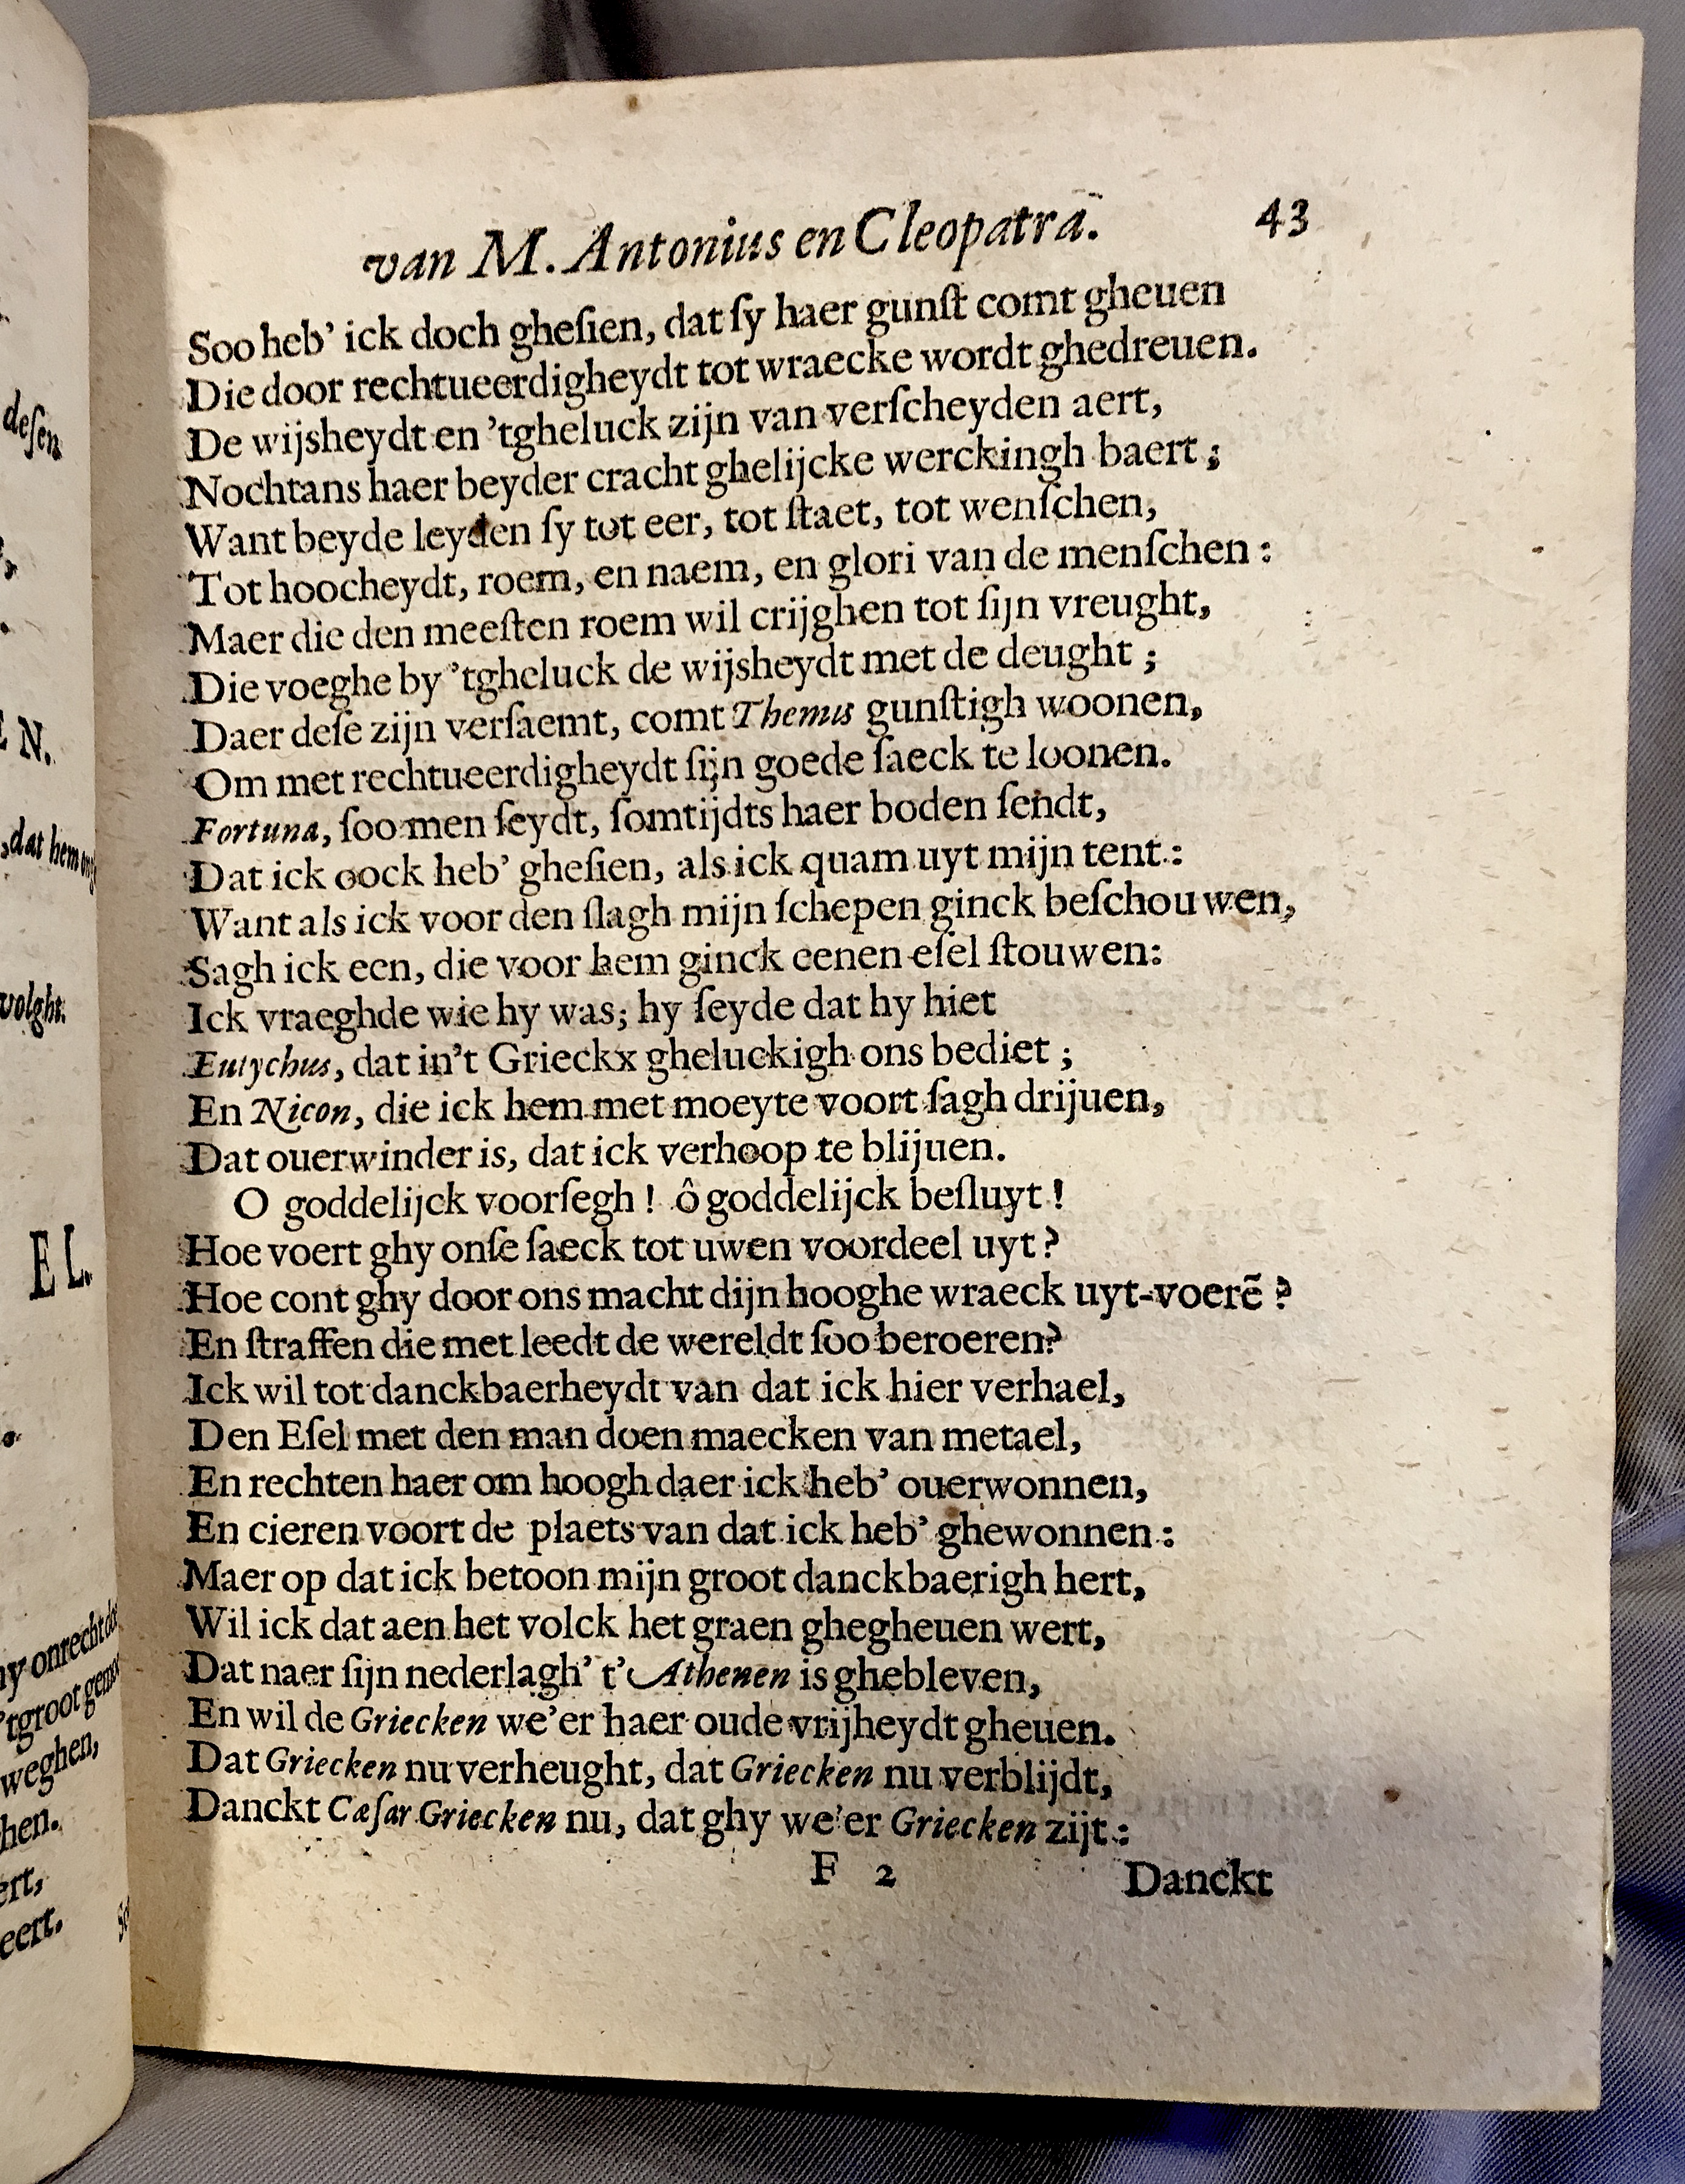 van M. Antonius en Cleopatra. 43
Soo heb’ ick doch gheſien, dat ſy haer gunſt comt gheuen
Die door rechtueerdigheydt tot wraecke wordt ghedreuen.
De wijsheydt en ’tgheluck zijn van verſcheyden aert,
Nochtans haer beyder cracht ghelijcke werckingh baert;
Want beyde leyden ſy tot eer, tot ſtaet, tot wenſchen,
Tot hoocheydt, roem, en naem, en glori van de menſchen:
Maer die den meeſten roem wil crijghen tot ſijn vreught,
Die voeghe by ’tgheluck de wijsheydt met de deught;
Daer deſe zijn verſaemt, comt Themis gunſtigh woonen,
Om met rechtueerdigheydt ſijn goede ſaeck te loonen.
Fortuna, ſoo men ſeydt, ſomtijdts haer boden ſendt,
Dat ick oock heb’ gheſien, als ick quam uyt mijn tent:
Want als ick voor den ſlagh mijn ſchepen ginck beſchouwen,
Sagh ick een, die voor hem ginck eenen eſel ſtouwen:
Ick vraeghde wie hy was; hy ſeyde dat hy hiet
Eutychus, dat in’t Grieckx gheluckigh ons bediet;
En Nicon, die ick hem met moeyte voort ſagh drijuen,
Dat ouerwinder is, dat ick verhoop te blijuen.
O goddelijck voorſegh! ô goddelijck beſluyt!
Hoe voert ghy onſe ſaeck tot uwen voordeel uyt?
Hoe cont ghy door ons macht dijn hooghe wraeck uyt-voerẽ?
En ſtraffen die met leedt de wereldt ſoo beroeren?
Ick wil tot danckbaerheydt van dat ick hier verhael,
Den Eſel met den man doen maecken van metael,
En rechten haer om hoogh daer ick heb’ ouerwonnen,
En cieren voort de plaets van dat ick heb’ ghewonnen:
Maer op dat ick betoon mijn groot danckbaerigh hert,
Wil ick dat aen het volck het graen ghegheuen wert,
Dat naer ſijn nederlagh’ t’Athenen is ghebleven,
En wil de Griecken we’er haer oude vrijheydt gheuen.
Dat Griecken nu verheught, dat Griecken nu verblijdt,
Danckt Cæſar Griecken nu, dat ghy we’er Griecken zijt:
F 2 Danckt
deſen
N.
,dat hem
volght.
EL.
onrecht
’tgroot
weghen,
hen.
ert,
eert.